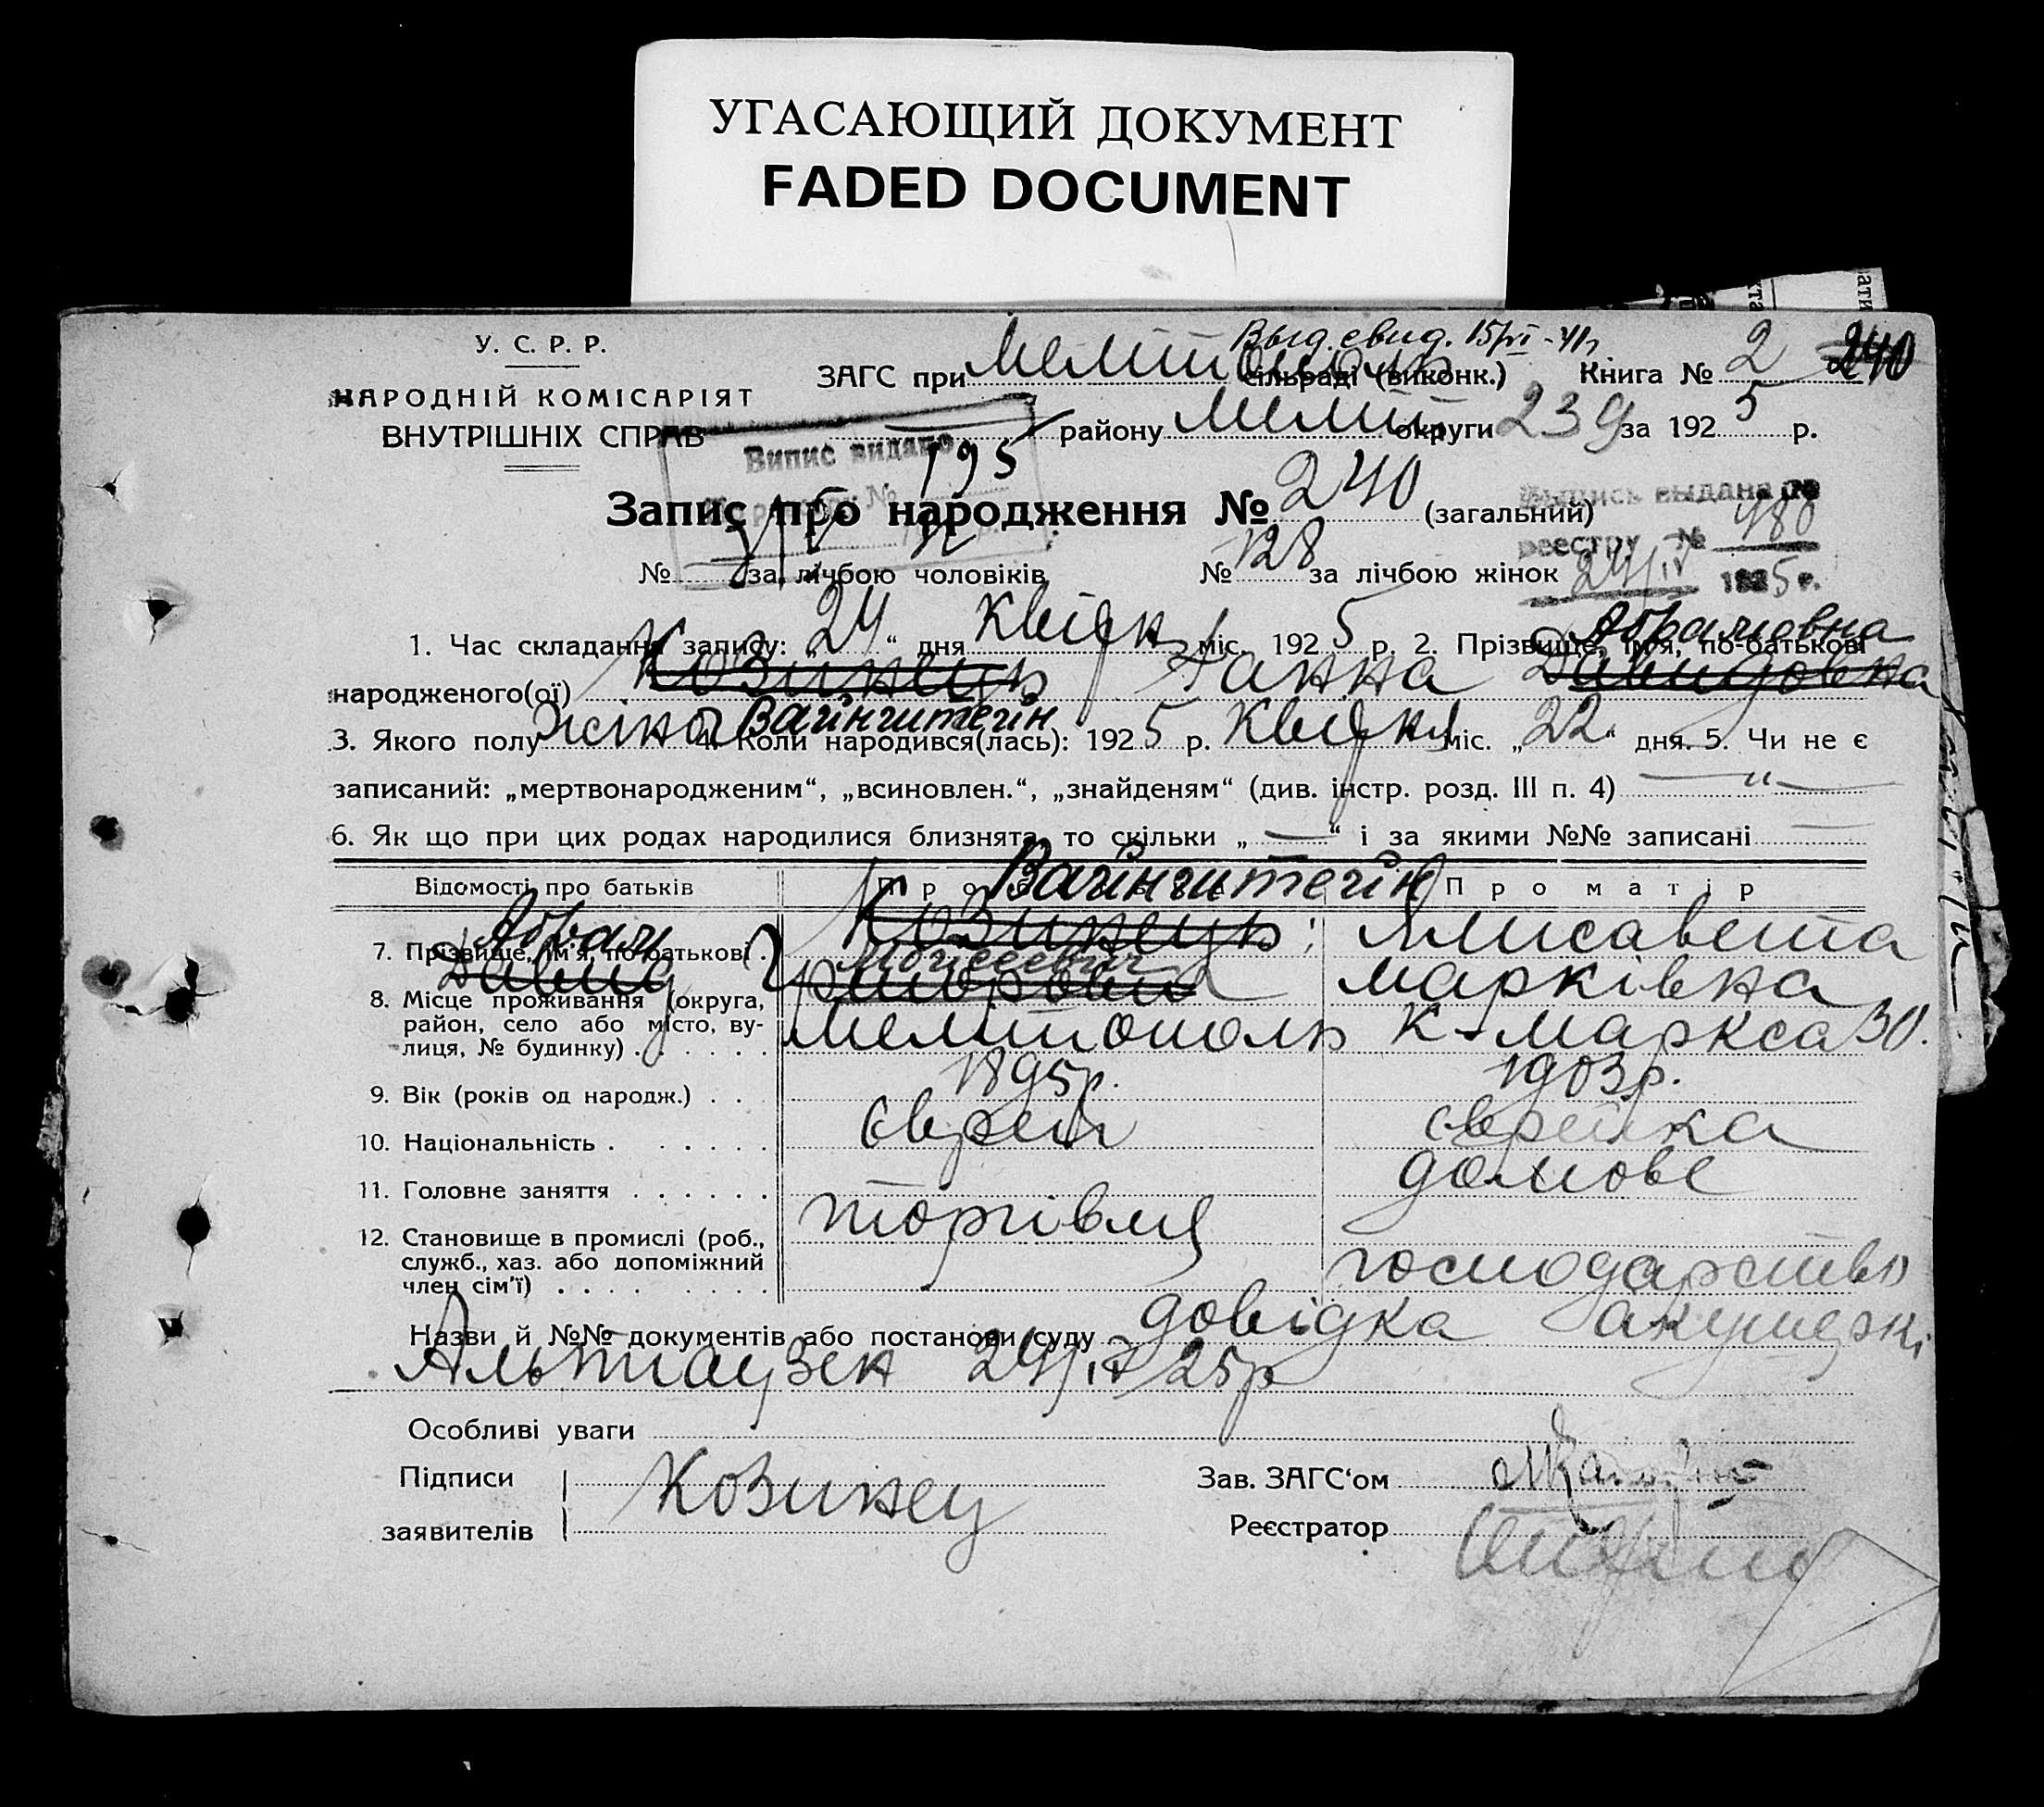 УГАСАЮЩИЙ ДОКУМЕНТ
FADED DOCUMENT
Выд. свид. 15/VI-41г
У. С. Р. Р.
НАРОДНІЙ КОМІСАРІЯТ
ВНУТРІШНІХ СПРАВ
ЗАГС при Мелітополь сільраді (виконк.) Книга № 2 240
району Меліт округи 239 за 1925 р.
Випис видано
195
Запис про народження № 240 (загальний)
Выпись выдана по
реестру № 480
24/IV 1925 г.
№ за лічбою чоловіків № 128 за лічбою жінок
1. Час складання запису: „24“ дня Квітня міс. 1925 р. 2. Прізвище, ім'я, по-батькові
Абрамовна
народженого(ої) Козинець Ганна Давидовна
Вайнштейн
3. Якого полу жіноч 4. Коли народився(лась): 1925 р. Квітня міс. „22“ дня. 5. Чи не є
записаний: „мертвонародженим“, „всиновлен.“, „знайденям“ (див. інстр. розд. III п. 4) — „ —
6. Як що при цих родах народилися близнята, то скільки „ — “ і за якими №№ записані —
Відомості про батьків Про Про матір
Вайнштейн
Абрам
7. Прізвище, ім'я, по-батькові . Козинець Єлисавета
Давид Моисеевич Марківна
8. Місце проживання (округа, район, село або місто, вулиця, № будинку) . . . . . . Мелітополь К-Маркса 30.
9. Вік (років од народж.) . . 1895р. 1903р.
10. Національність . . . . . . Єврей єврейка
11. Головне заняття . . . . . . торгівля домове
12. Становище в промислі (роб., служб., хаз. або допоміжний член сім'ї) . . . . . . . . господарство
Назви й №№ документів або постанови суду довідка акушерки
Альтгаузен 24/IV 25р
Особливі уваги
Підписи
заявителів Козинец
Зав. ЗАГС'ом
Реєстратор